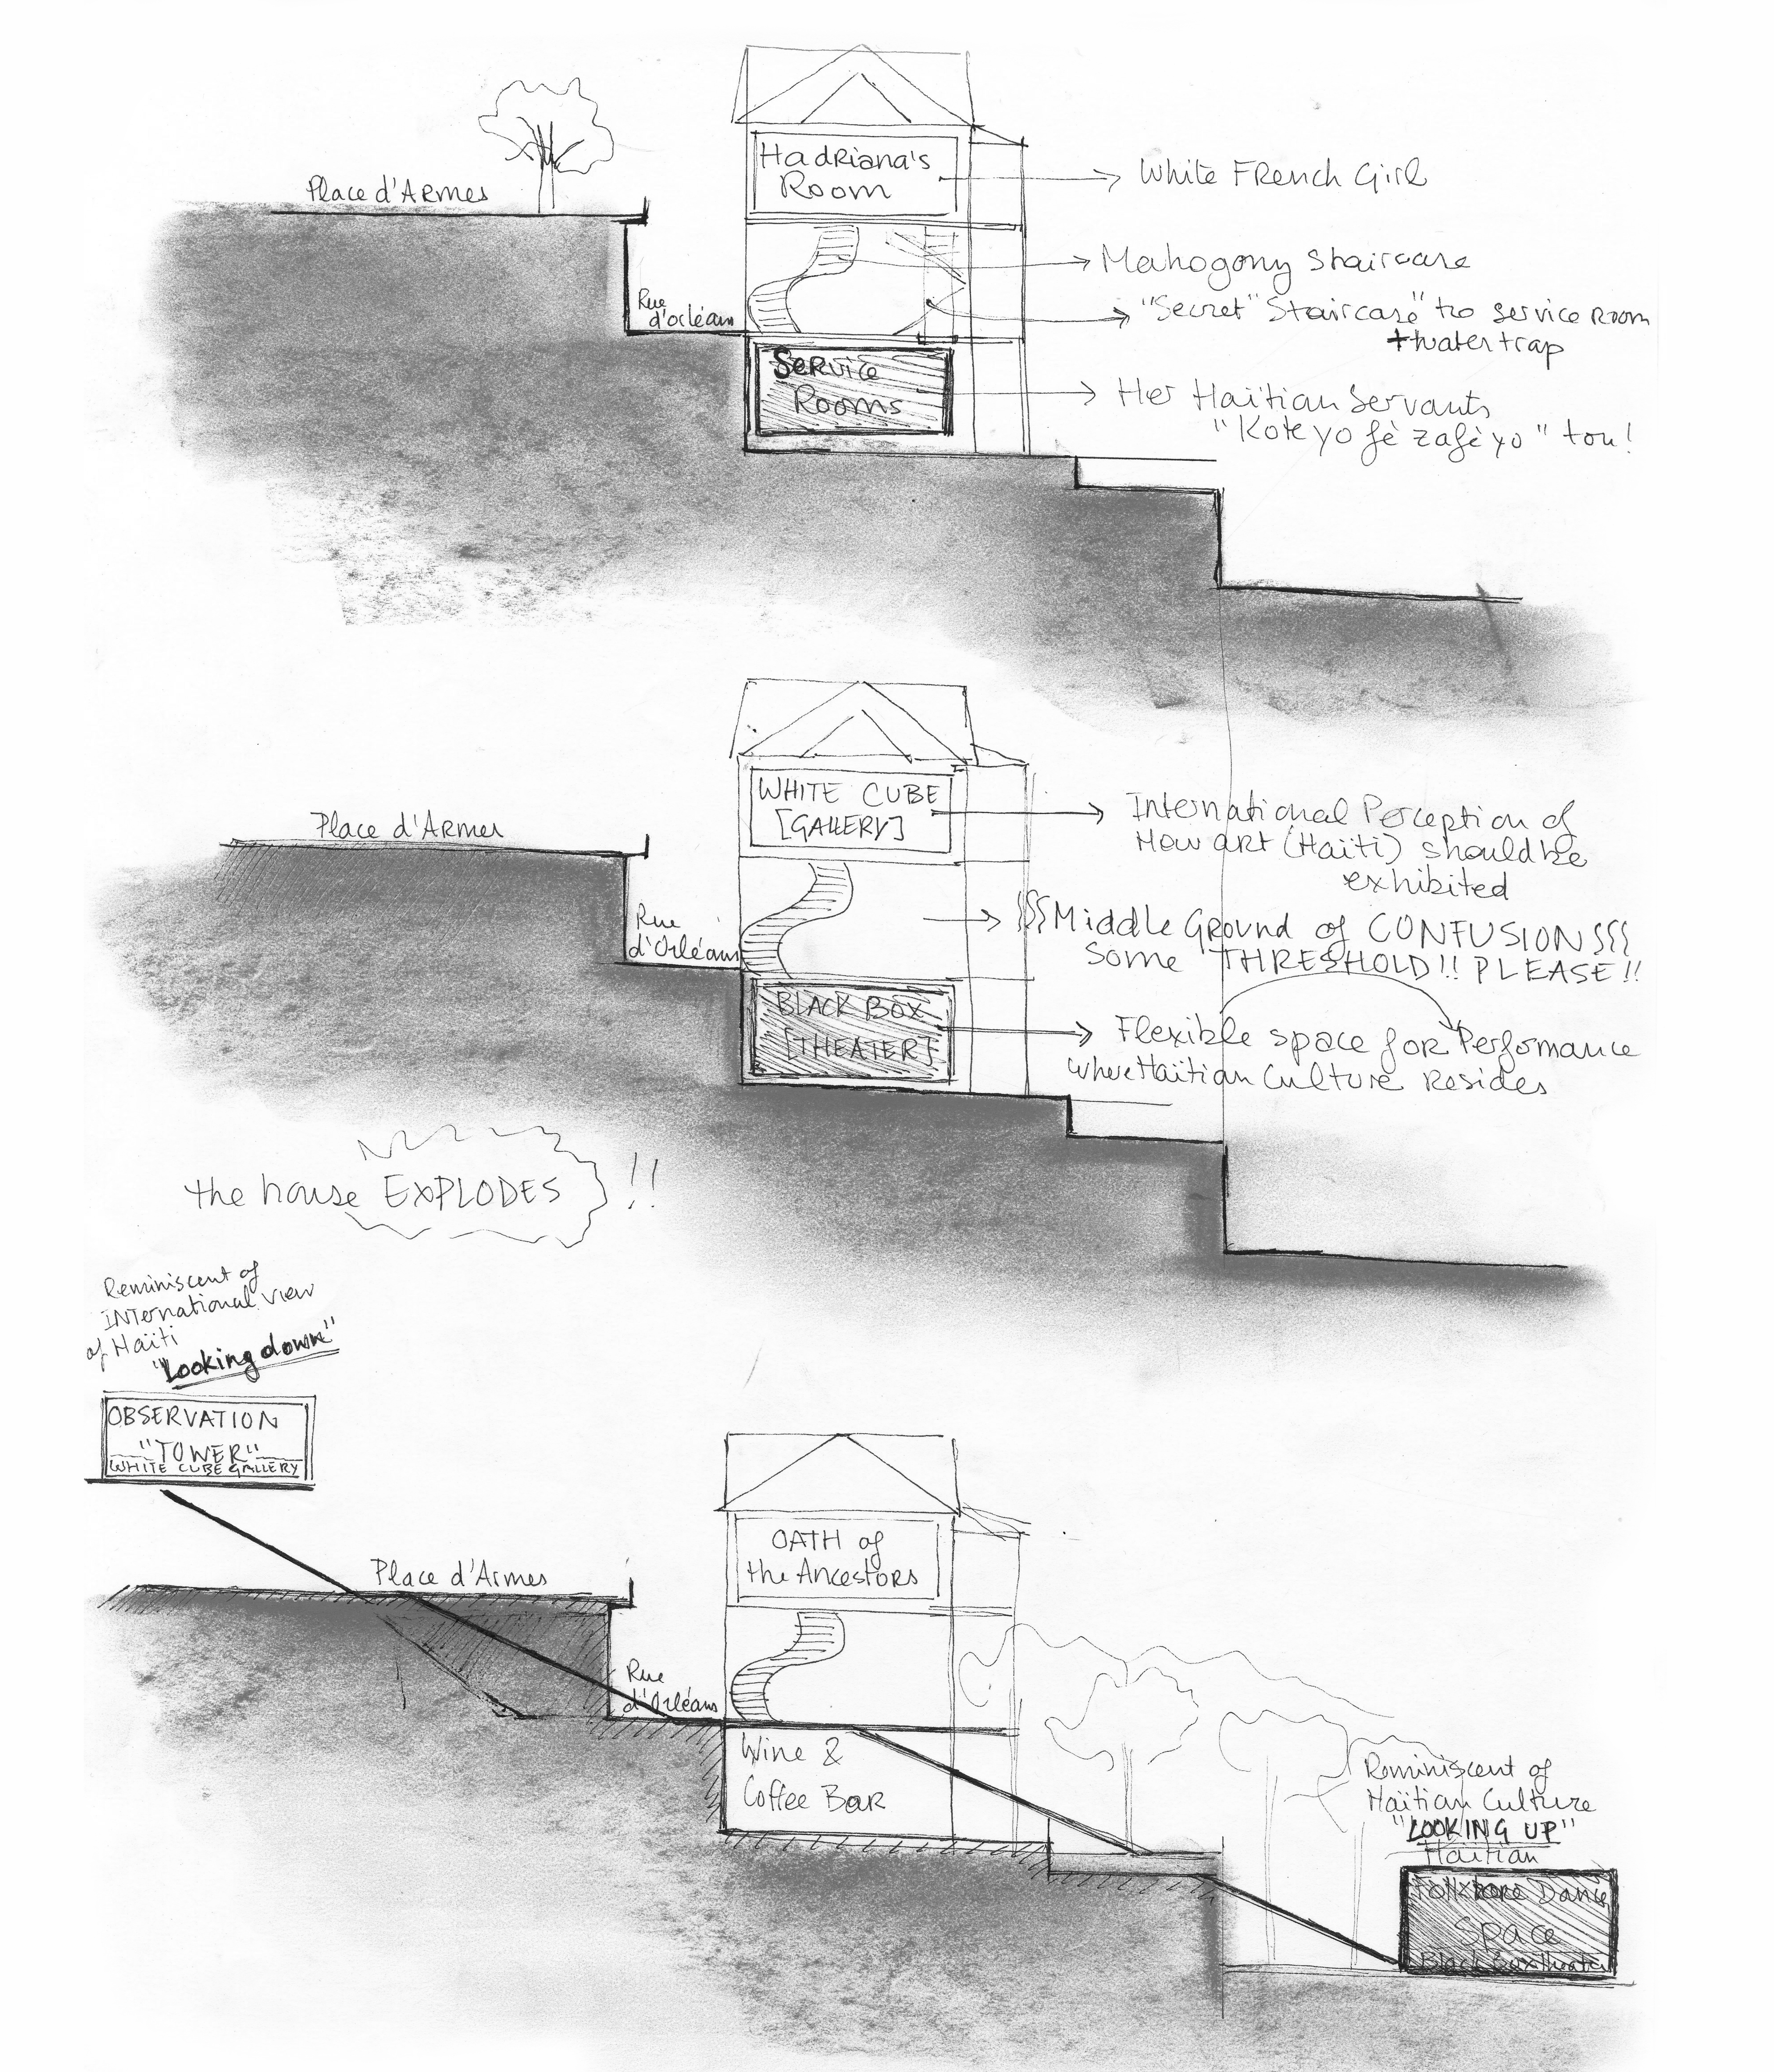 Place d'Armes
Hadriana's
Room
White French Girl
Mahogony Staircase
Rue
d'orléans
"Secret" Staircase" to service Room
+ water trap
Service
Rooms
Her Haïtian Servants
"Kote yo fè zafè yo" tou!
Place d'Armes
WHITE CUBE
[GALLERY]
International Perception of
How art (Haïti) should be
exhibited
Rue
d'Orléans
Middle Ground of CONFUSION
Some THRESHOLD!! PLEASE!!
BLACK BOX
[THEATER]
Flexible space for Performance
where Haïtian Culture Resides
the house EXPLODES !!
Reminiscent of
INternational view
of Haïti
"Looking down"
OBSERVATION
"TOWER"
WHITE CUBE GALLERY
Place d'Armes
OATH of
the Ancestors
Rue
d'Orléans
Wine &
Coffee Bar
Reminiscent of
Haïtian Culture
"LOOKING UP"
Haïtian
Folklore Dance
Space
Black Box Theater